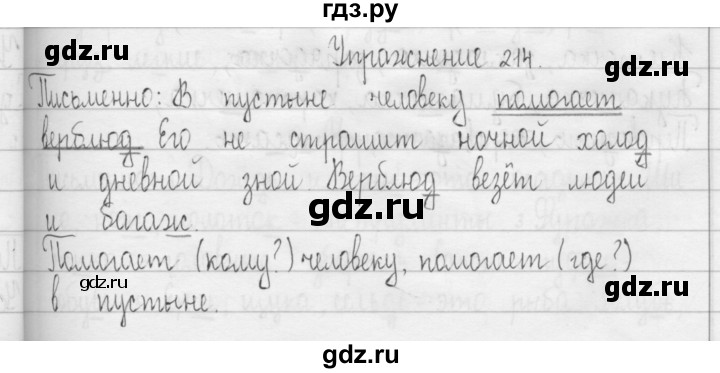 гдз.ру
Упражнение 214.
Письменно: В пустыне человеку помогает
верблюд Его не страшит ночной холод
и дневной зной Верблюд везёт людей
и багаж.
Помогает (кому?) человеку, помогает (где?)
в пустыне.
gdz.ru
gdz.ru
gdz.ru
gdz.ru
gdz.ru
gdz.ru
gdz.ru
gdz.ru